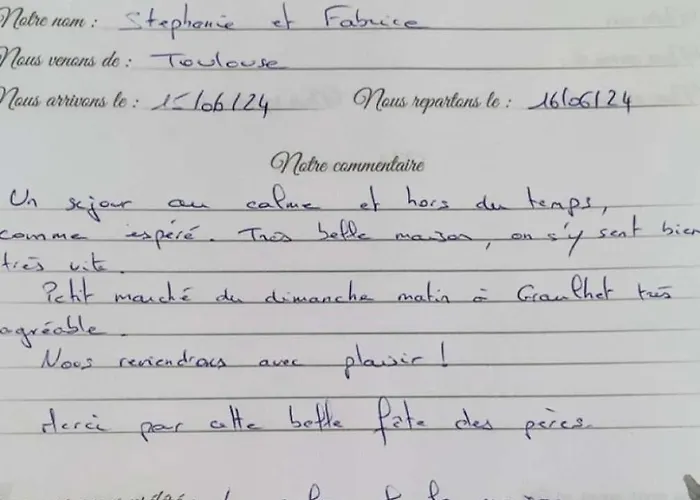 Notre nom : Stephanie et Fabrice
Nous venons de : Toulouse
Nous arrivons le : 15/06/24 Nous repartons le : 16/06/24
Notre commentaire
Un sejour au calme et hors du temps,
comme espéré. Très belle maison, on s'y sent bien
très vite.
Petit marché du dimanche matin à Graulhet très
agréable.
Nous reviendrons avec plaisir !
Merci pour cette belle fête des pères.